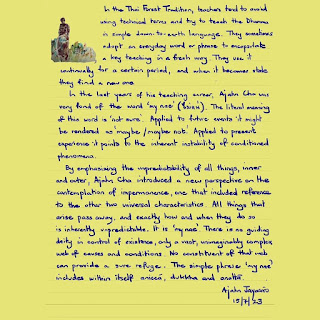 In the Thai Forest Tradition, teachers tend to avoid
using technical terms and try to teach the Dhamma
in simple down-to-earth language. They sometimes
adopt an everyday word or phrase to encapsulate
a key teaching in a fresh way. They use it
continually for a certain period, and when it becomes stale
they find a new one.
In the last years of his teaching career, Ajahn Cha was
very fond of the word 'my nae' (ไม่แน่). The literal meaning
of this word is 'not sure'. Applied to future events it might
be rendered as 'maybe / maybe not'. Applied to present
experience it points to the inherent instability of conditioned
phenomena.
By emphasising the unpredictability of all things, inner
and outer, Ajahn Cha introduced a new perspective on the
contemplation of impermanence, one that included reference
to the other two universal characteristics. All things that
arise pass away, and exactly how and when they do so
is inherently unpredictable. It is 'my nae'. There is no guiding
deity in control of existence, only a vast, unimaginably complex
web of causes and conditions. No constituent of that web
can provide a sure refuge. The simple phrase 'my nae'
includes within itself anicca, dukkha and anatta.
Ajahn Jayasāro
15/7/23